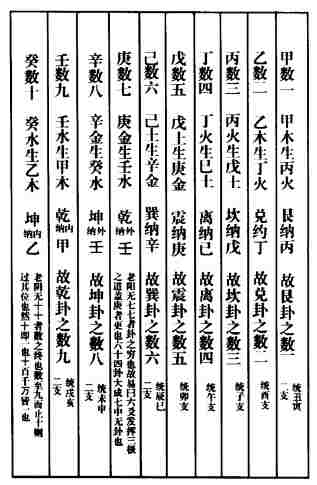 甲数一 甲木生丙火 艮纳丙 故艮卦之数一 统丑寅二支
乙数二 乙木生丁火 兑约丁 故兑卦之数二 统酉支
丙数三 丙火生戊土 坎纳戊 故坎卦之数三 统子支
丁数四 丁火生巳土 离纳巳 故离卦之数四 统午支
戊数五 戊土生庚金 震纳庚 故震卦之数五 统卯支
己数六 己土生辛金 巽纳辛 故巽卦之数六 统辰巳二支
庚数七 庚金生壬水 乾外纳壬 老阳无七七者卦之穷也故易曰六爻发挥三极
之道盖庚者更也六十四卦大成七中无卦也
辛数八 辛金生癸水 坤外纳壬 故坤卦之数八 统未申二支
壬数九 壬水生甲木 乾内纳甲 故乾卦之数九 统戌亥二支
癸数十 癸水生乙木 坤内纳乙 老阴无十十者数之终也数至九而止十则
过其位也然十即一也十百千万皆一也